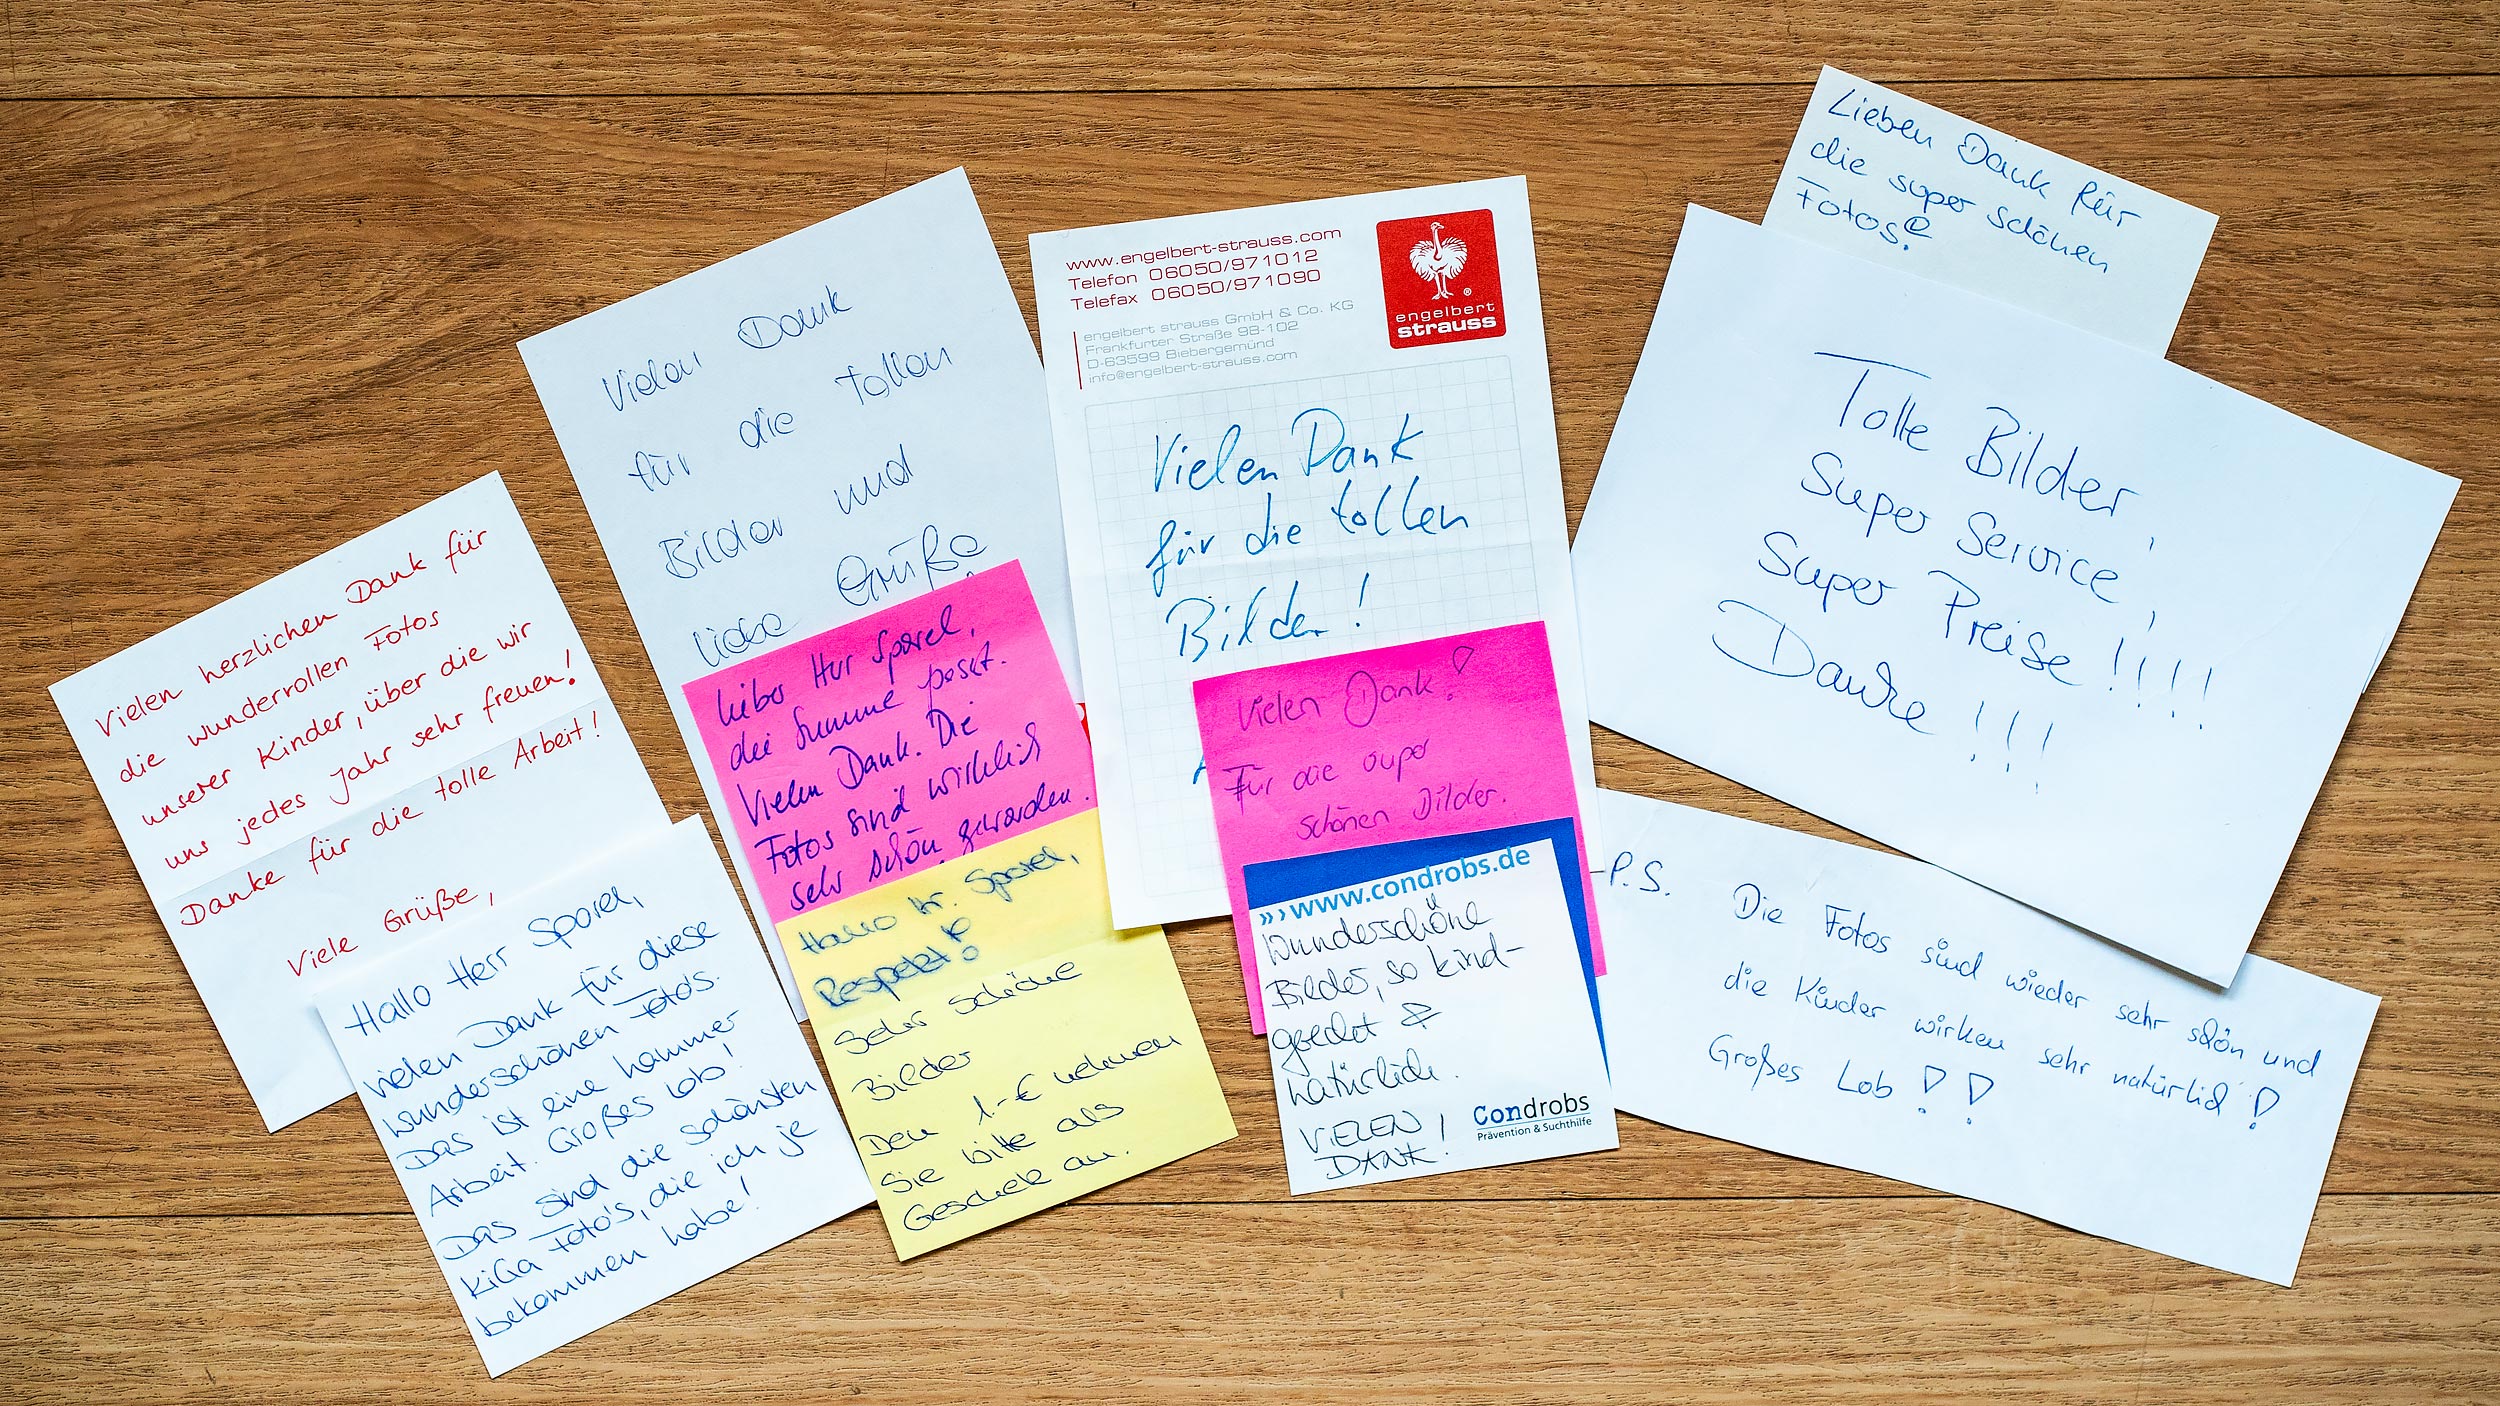 Vielen herzlichen Dank für
die wundervollen Fotos
unserer Kinder, über die wir
uns jedes Jahr sehr freuen!
Danke für die tolle Arbeit!
Viele Grüße,
Hallo Herr Sporel,
vielen Dank für diese
wunderschönen Foto's.
Das ist eine hammer
Arbeit. Großes Lob!
Das sind die schönsten
KiGa Foto's, die ich je
bekommen habe!
Vielen Dank
für die tollen
Bilder und
liebe Grüße
Lieber Herr Sporel,
die Summe passt.
Vielen Dank. Die
Fotos sind wirklich
sehr schön geworden.
Hallo Hr. Sporel,
Respekt!
Sehr schöne
Bilder
Den 1.-€ nehmen
Sie bitte als
Geschenk an.
www.engelbert-strauss.com
Telefon 06050/971012
Telefax 06050/971090
engelbert strauss GmbH & Co. KG
Frankfurter Straße 98-102
D-63599 Biebergemünd
info@engelbert-strauss.com
engelbert
strauss
Vielen Dank
für die tollen
Bilder!
Vielen Dank!
Für die super
schönen Bilder.
»›www.condrobs.de
Wunderschöne
Bilder, so kind-
gerecht &
natürlich.
VIELEN
DANK!
Condrobs
Prävention & Suchthilfe
Lieben Dank für
die super schönen
Fotos!
Tolle Bilder,
Super Service,
Super Preise!!!!
Danke!!!
P.S. Die Fotos sind wieder sehr schön und
die Kinder wirken sehr natürlich!
Großes Lob!!